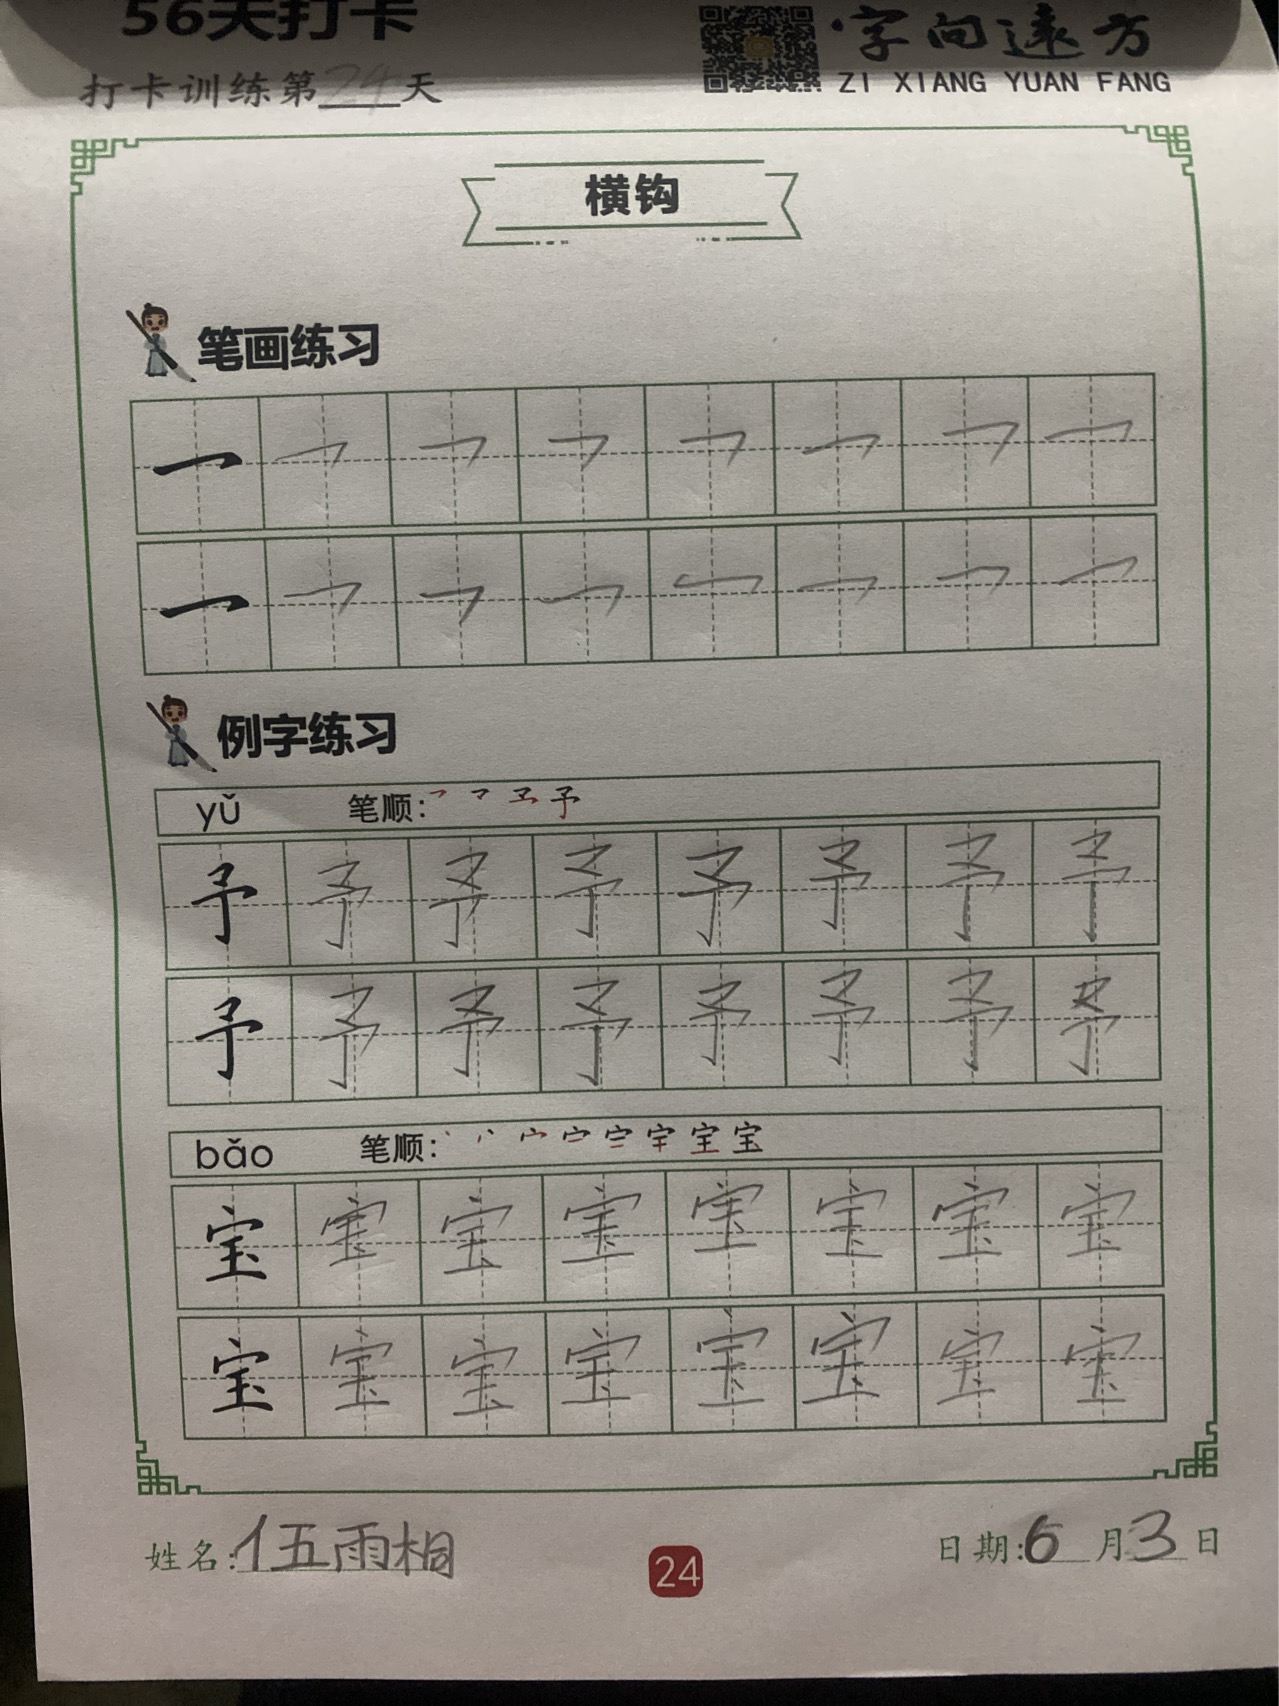 56天打卡
·字向远方
ZI XIANG YUAN FANG
打卡训练第24天
横钩
笔画练习
例字练习
yǔ 笔顺: 予
予 予 予 予 予 予 予 予
予 予 予 予 予 予 予 予
bǎo 笔顺: 宝
宝 宝 宝 宝 宝 宝 宝 宝
宝 宝 宝 宝 宝 宝 宝 宝
姓名:伍雨相
24
日期:6月3日